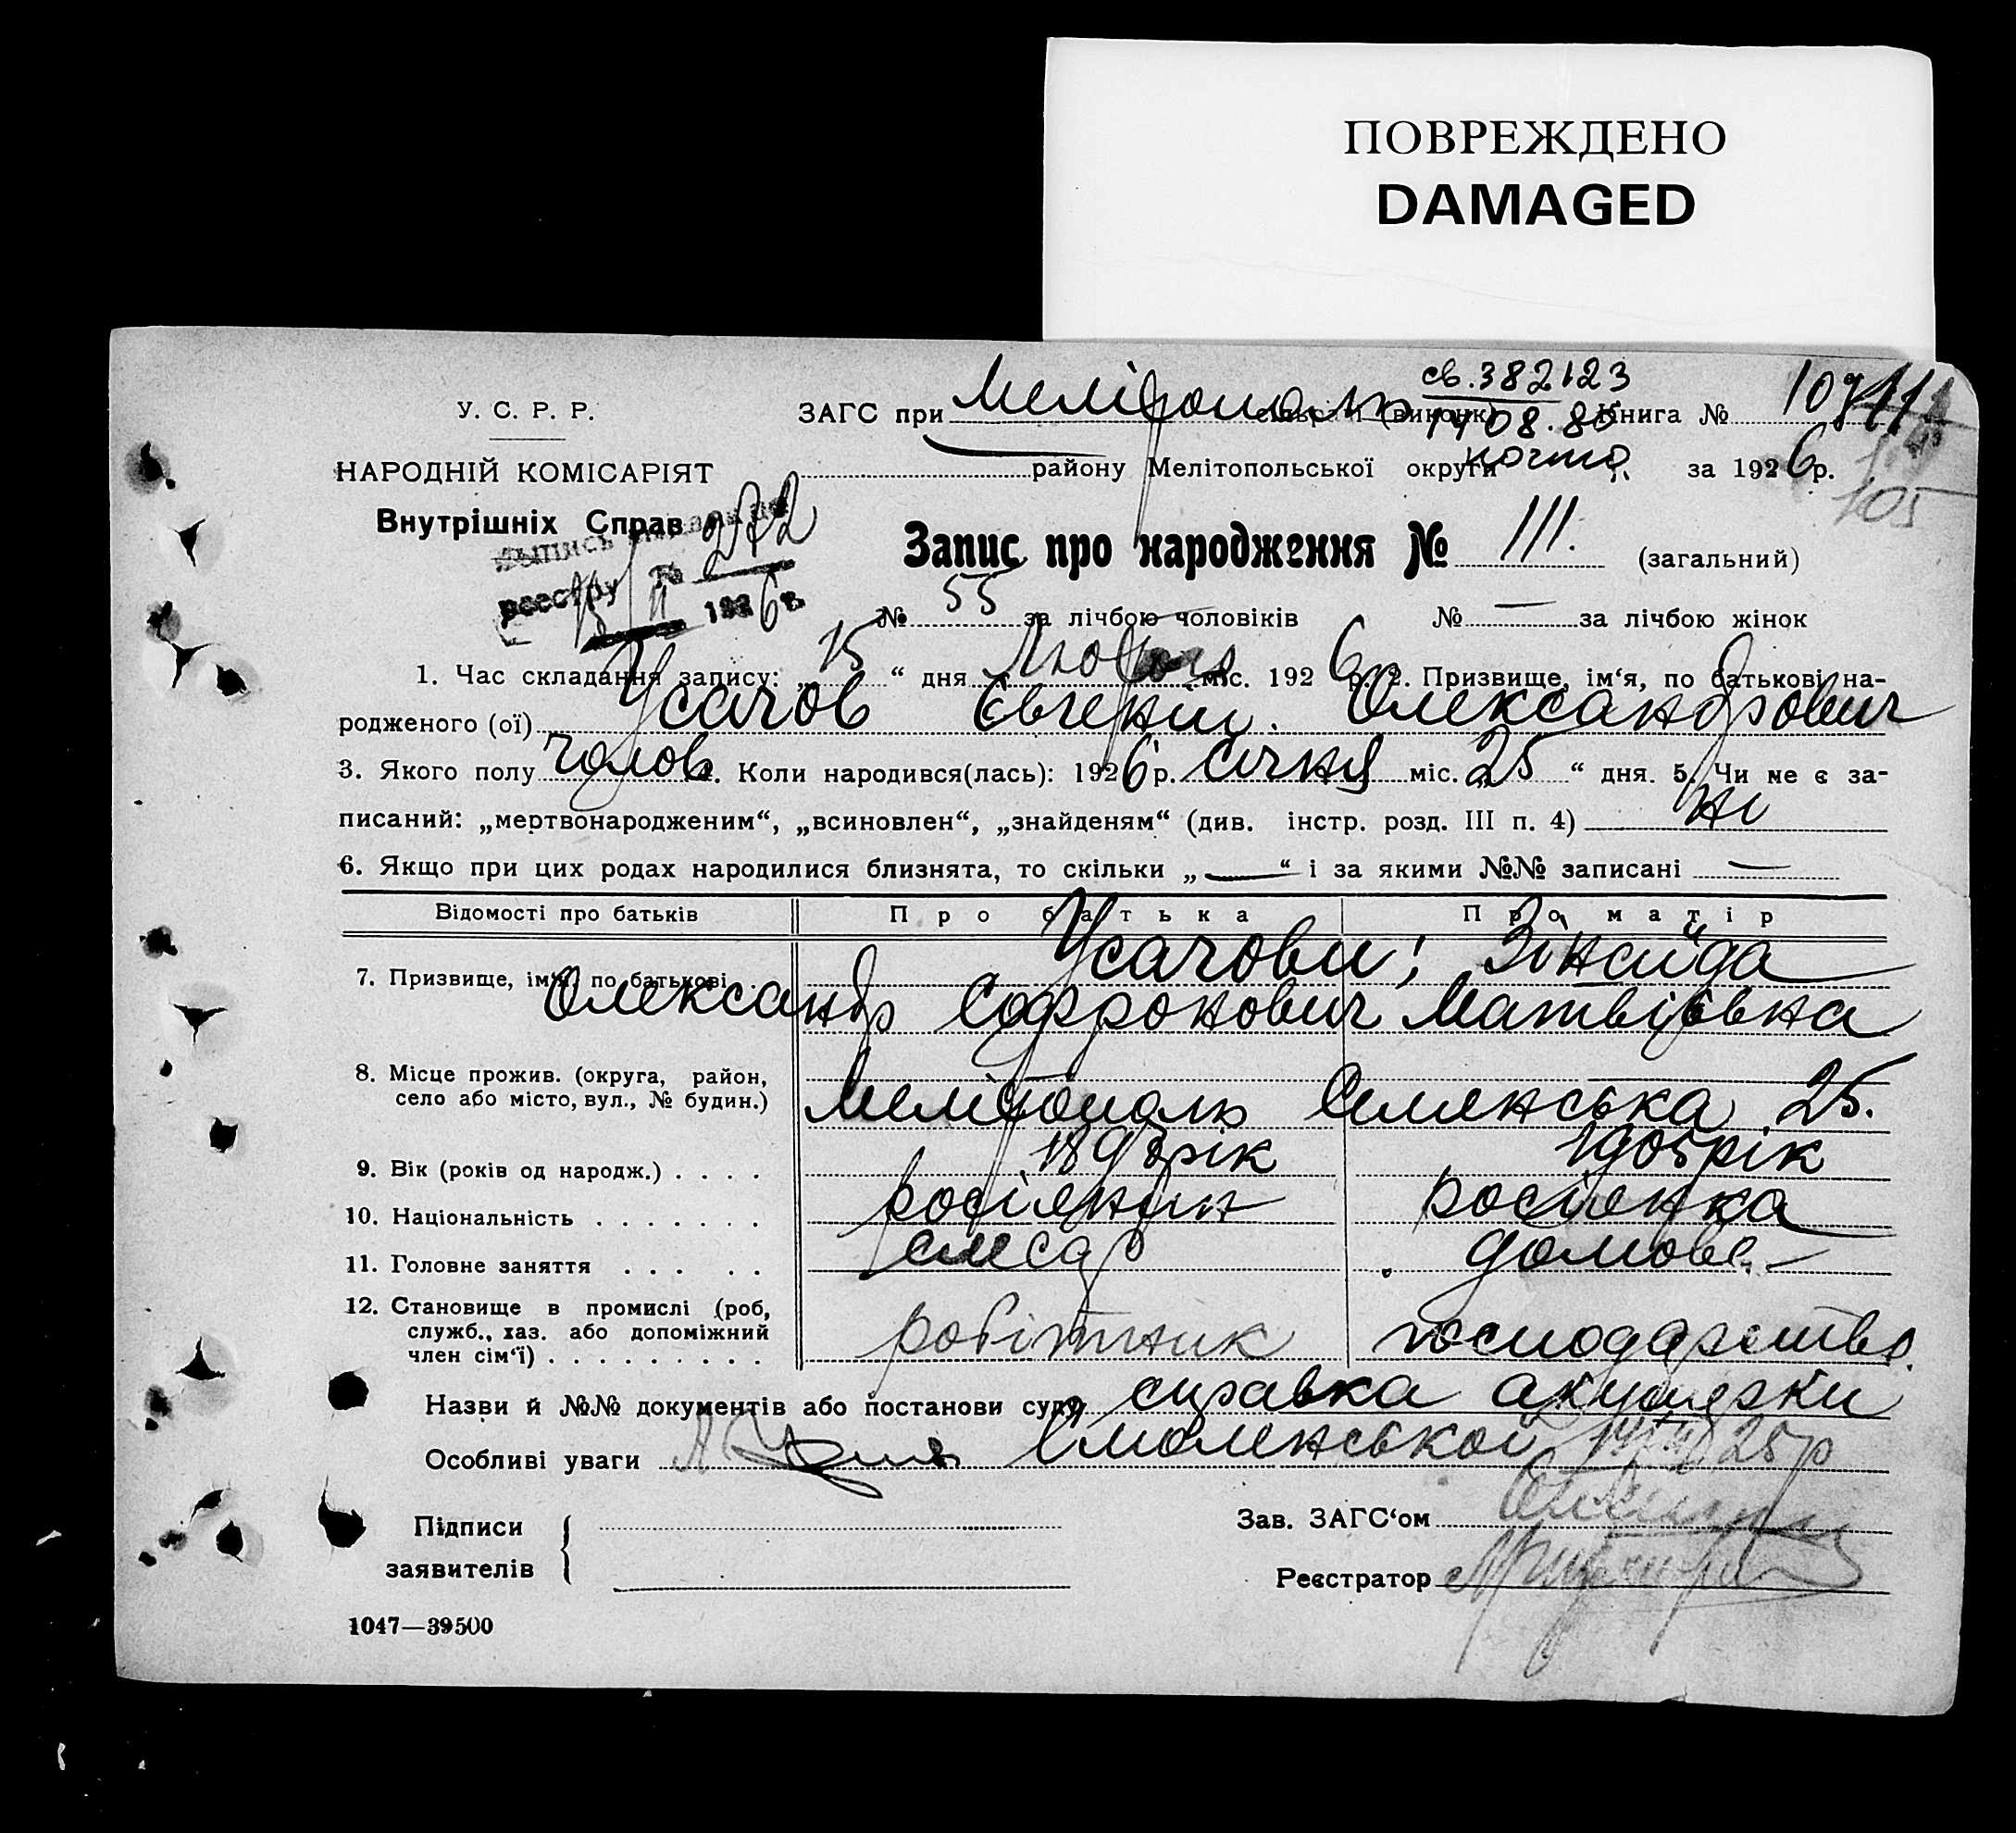 ПОВРЕЖДЕНО
DAMAGED
св. 382123
У. С. Р. Р. ЗАГС при Мелітополь (виконк) Книга №
14 08. 80
почта
НАРОДНІЙ КОМІСАРІЯТ району Мелітопольської округи за 1926 р.
105
Внутрішніх Справ
272
реестру 1926 г.
Запис про народження № 111. (загальний)
№ 55 за лічбою чоловіків № — за лічбою жінок
1. Час складання запису: „ 15 “ дня Лютого міс. 1926 р. 2. Призвище, ім‘я, по батькові на-
родженого (ої) Усачов Євгеній Олександрович
3. Якого полу чолов 4. Коли народився(лась): 1926 р. січня міс. „ 25 “ дня. 5. Чи не є за-
писаний: „мертвонародженим“, „всиновлен“, „знайденям“ (див. інстр. розд. III п. 4) ні
6. Якщо при цих родах народилися близнята, то скільки „ — “ і за якими №№ записані —
Відомості про батьків Про батька Про матір
Усачови; Зінаїда
7. Призвище, ім‘я, по батькові
Олександр Софронович Матвіївна
8. Місце прожив. (округа, район,
село або місто, вул., № будин.) Мелітополь 25.
9. Вік (років од народж.) . . . . рік 1905 рік
10. Національність . . . . . . . росіянин росіянка
11. Головне заняття . . . . . слесар домове
12. Становище в промислі (роб,
служб., хаз. або допоміжний
член сім‘ї) . . . . . . . . . робітник господарство.
Назви й №№ документів або постанови суду справка акушерки
Особливі уваги Смоленської 25 р
Підписи
заявителів
Зав. ЗАГС‘ом
Реєстратор
1047—39500